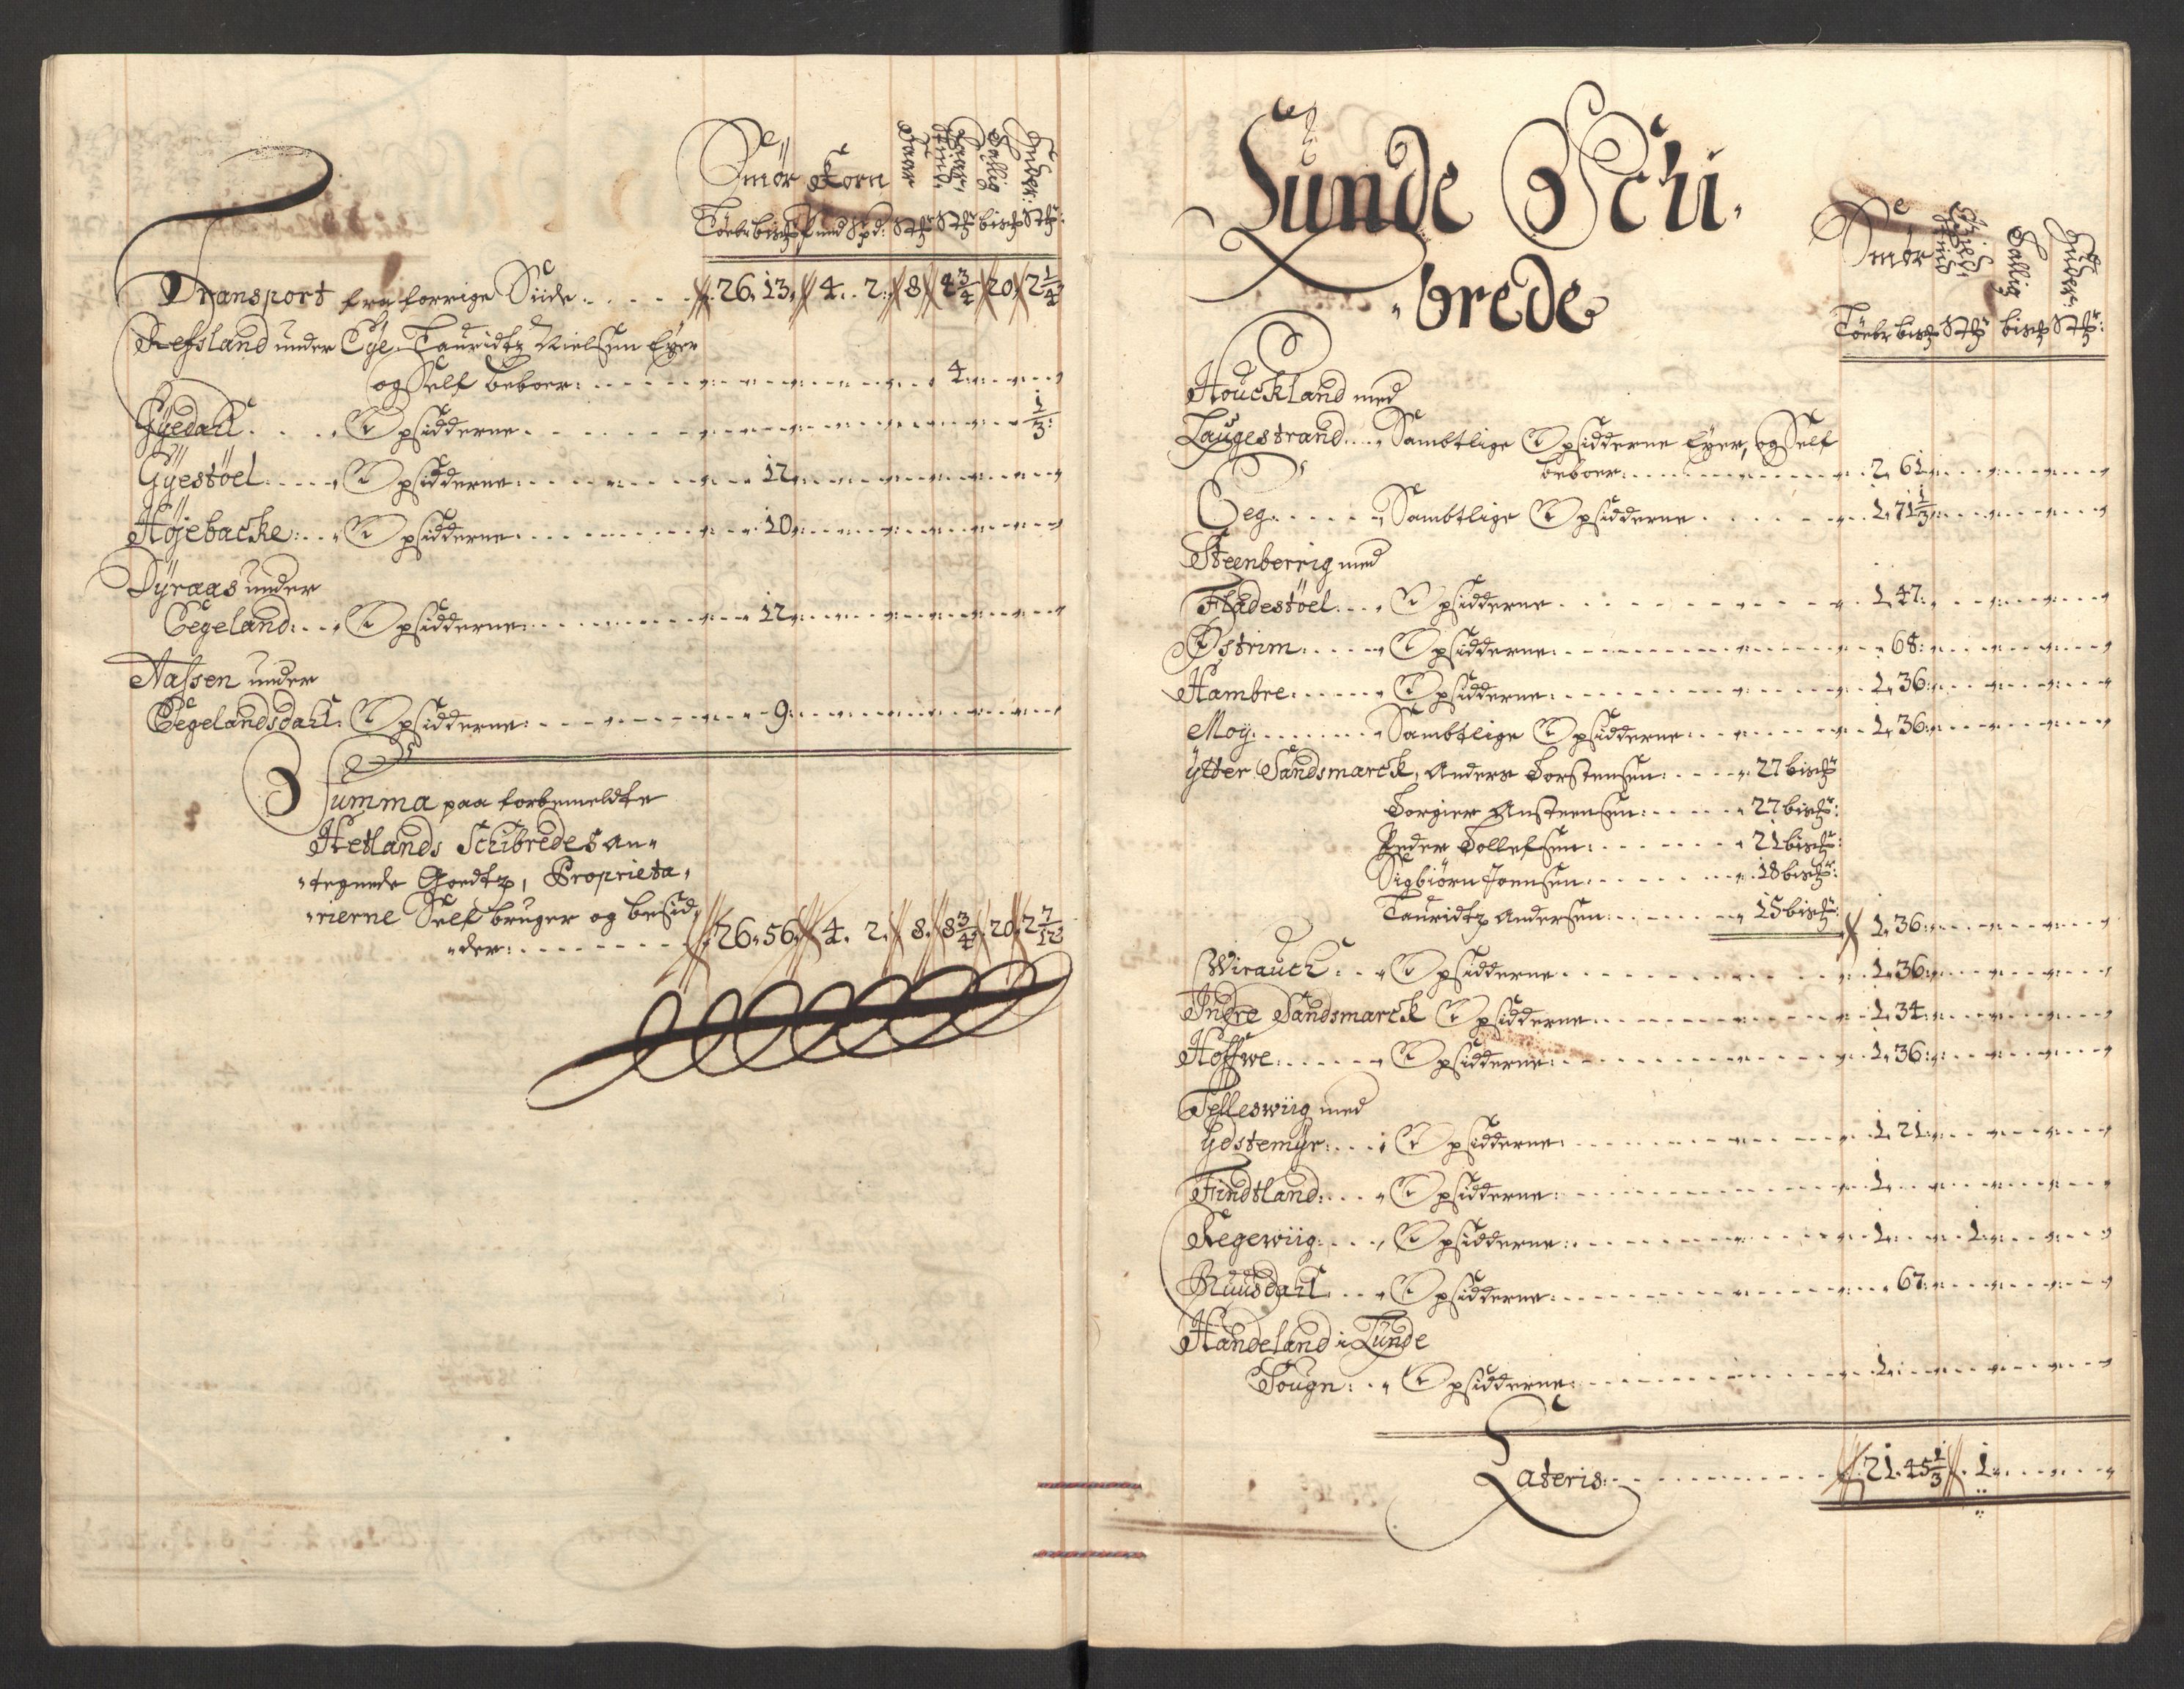 Smör Korn Faar Huud Sallig Huder
Löebr bisp und Spd: Stz Stz bisp Stz:
Transport fra forrige Siide: . . . . 26. 13. 4. 2. 8. 4 3/4 20. 2 1/4
Refsland under Eye, Lauridtz Nielssen Eyer
og Self beboer: . . . . 4:
Gÿedall. . . . Opsidderne. . . . 1/3:
Gÿestöel. . . . Opsidderne: . . . . 12
Höjebacke: . . Opsidderne: . . . . 10
Dÿraas under
Eegeland: . . Opsidderne: . . . . 12
Nassen under
Eegelandsdahl: Opsidderne: . . . . 9:
Summa paa forbemeldte
Hetlands Schibredes an-
tegnede Goedtz, Proprieta-
rierne Self bruger og besid-
der: . . . . 26. 56. 4. 2. 8. 8 3/4 20. 2 7/12
Lunde Schi-
brede
Smör Huud Sallig Huder
Löebr bisp Stz bisp Stz:
Houckland med
Laugestrand. . . Sambtlige Opsidderne Eyer, og Self
beboer: . . . . 2. 61
Eeg. . . . Sambtlige Opsidderne . . . . 1. 71 1/3
Steenberrig med
Fladestöel. . . Opsidderne . . . . 1. 47:
Østrim. . . . Opsidderne: . . . . 68:
Hambre. . . . Opsidderne: . . . . 1. 36:
Moÿ. . . . Sambtlige Opsidderne: . . . . 1. 36:
ÿtter Sandsmarck, Anders Torstensen: . . . 27 bisp
Torgier Anstensen: . . . 27 bisp:
Peder Tollefsen: . . . 21 bisp:
Sigbiörn Joensen. . . . 18 bisp:
Lauridtz Andersen: . . . 15 bisp: 1. 36:
Wirauch: . . Opsidderne . . . . 1. 36:
Indre Sandsmarck Opsidderne . . . . 1. 34:
Hoffwe: . . . . Opsidderne: . . . . 1. 36:
Felleswiig med
ÿdstemÿr: . . . Opsidderne: . . . . 1. 21:
Findtland: . . . Opsidderne: . . . . 1.
Regewiig: . . . Opsidderne: . . . . 1. 1:
Ruusdahl. . . Opsidderne: . . . . 67:
Handeland i Lunde
Sougn: . . Opsidderne: . . . . 1.
Lateris: . . . . 21. 45 1/3 1